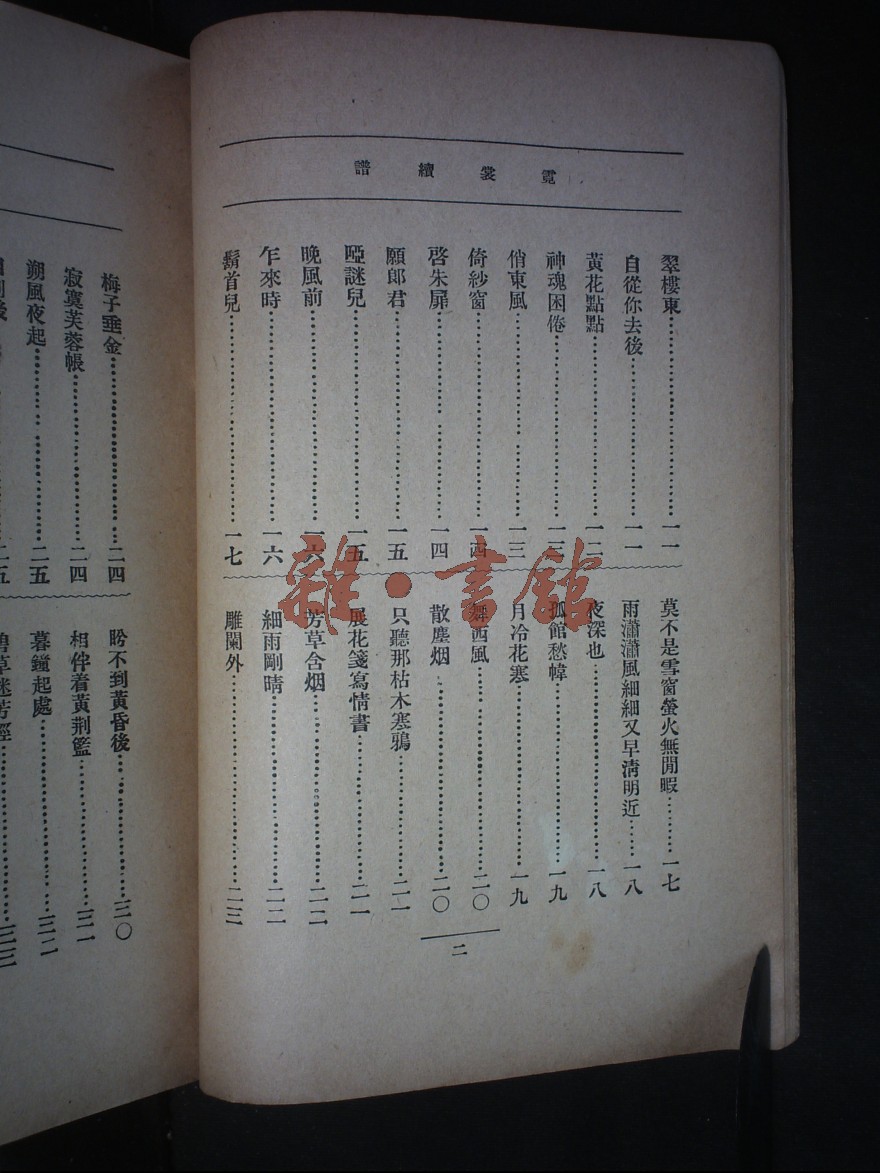 霓裳續譜
翠樓東……一一
自從你去後……一一
黃花點點……一二
神魂困倦……一三
俏東風……一三
倚紗窗……一四
啓朱扉……一四
願郎君……一五
啞謎兒……一五
晚風前……一六
乍來時……一六
鬅首兒……一七
莫不是雪窗螢火無閒暇……一七
雨瀟瀟風細細又早淸明近……一八
夜深也……一八
孤館愁幃……一九
月冷花寒……一九
舞西風……二〇
散塵烟……二〇
只聽那枯木寒鴉……二一
展花箋寫情書……二一
芳草含烟……二二
細雨剛晴……二二
雕闌外……二三
二
梅子垂金……二四
寂寞芙蓉帳……二四
朔風夜起……二五
二五
盼不到黃昏後……三〇
相伴着黃荆籃……三一
暮鐘起處……三二
碧草迷芳徑……三三
雜·書館